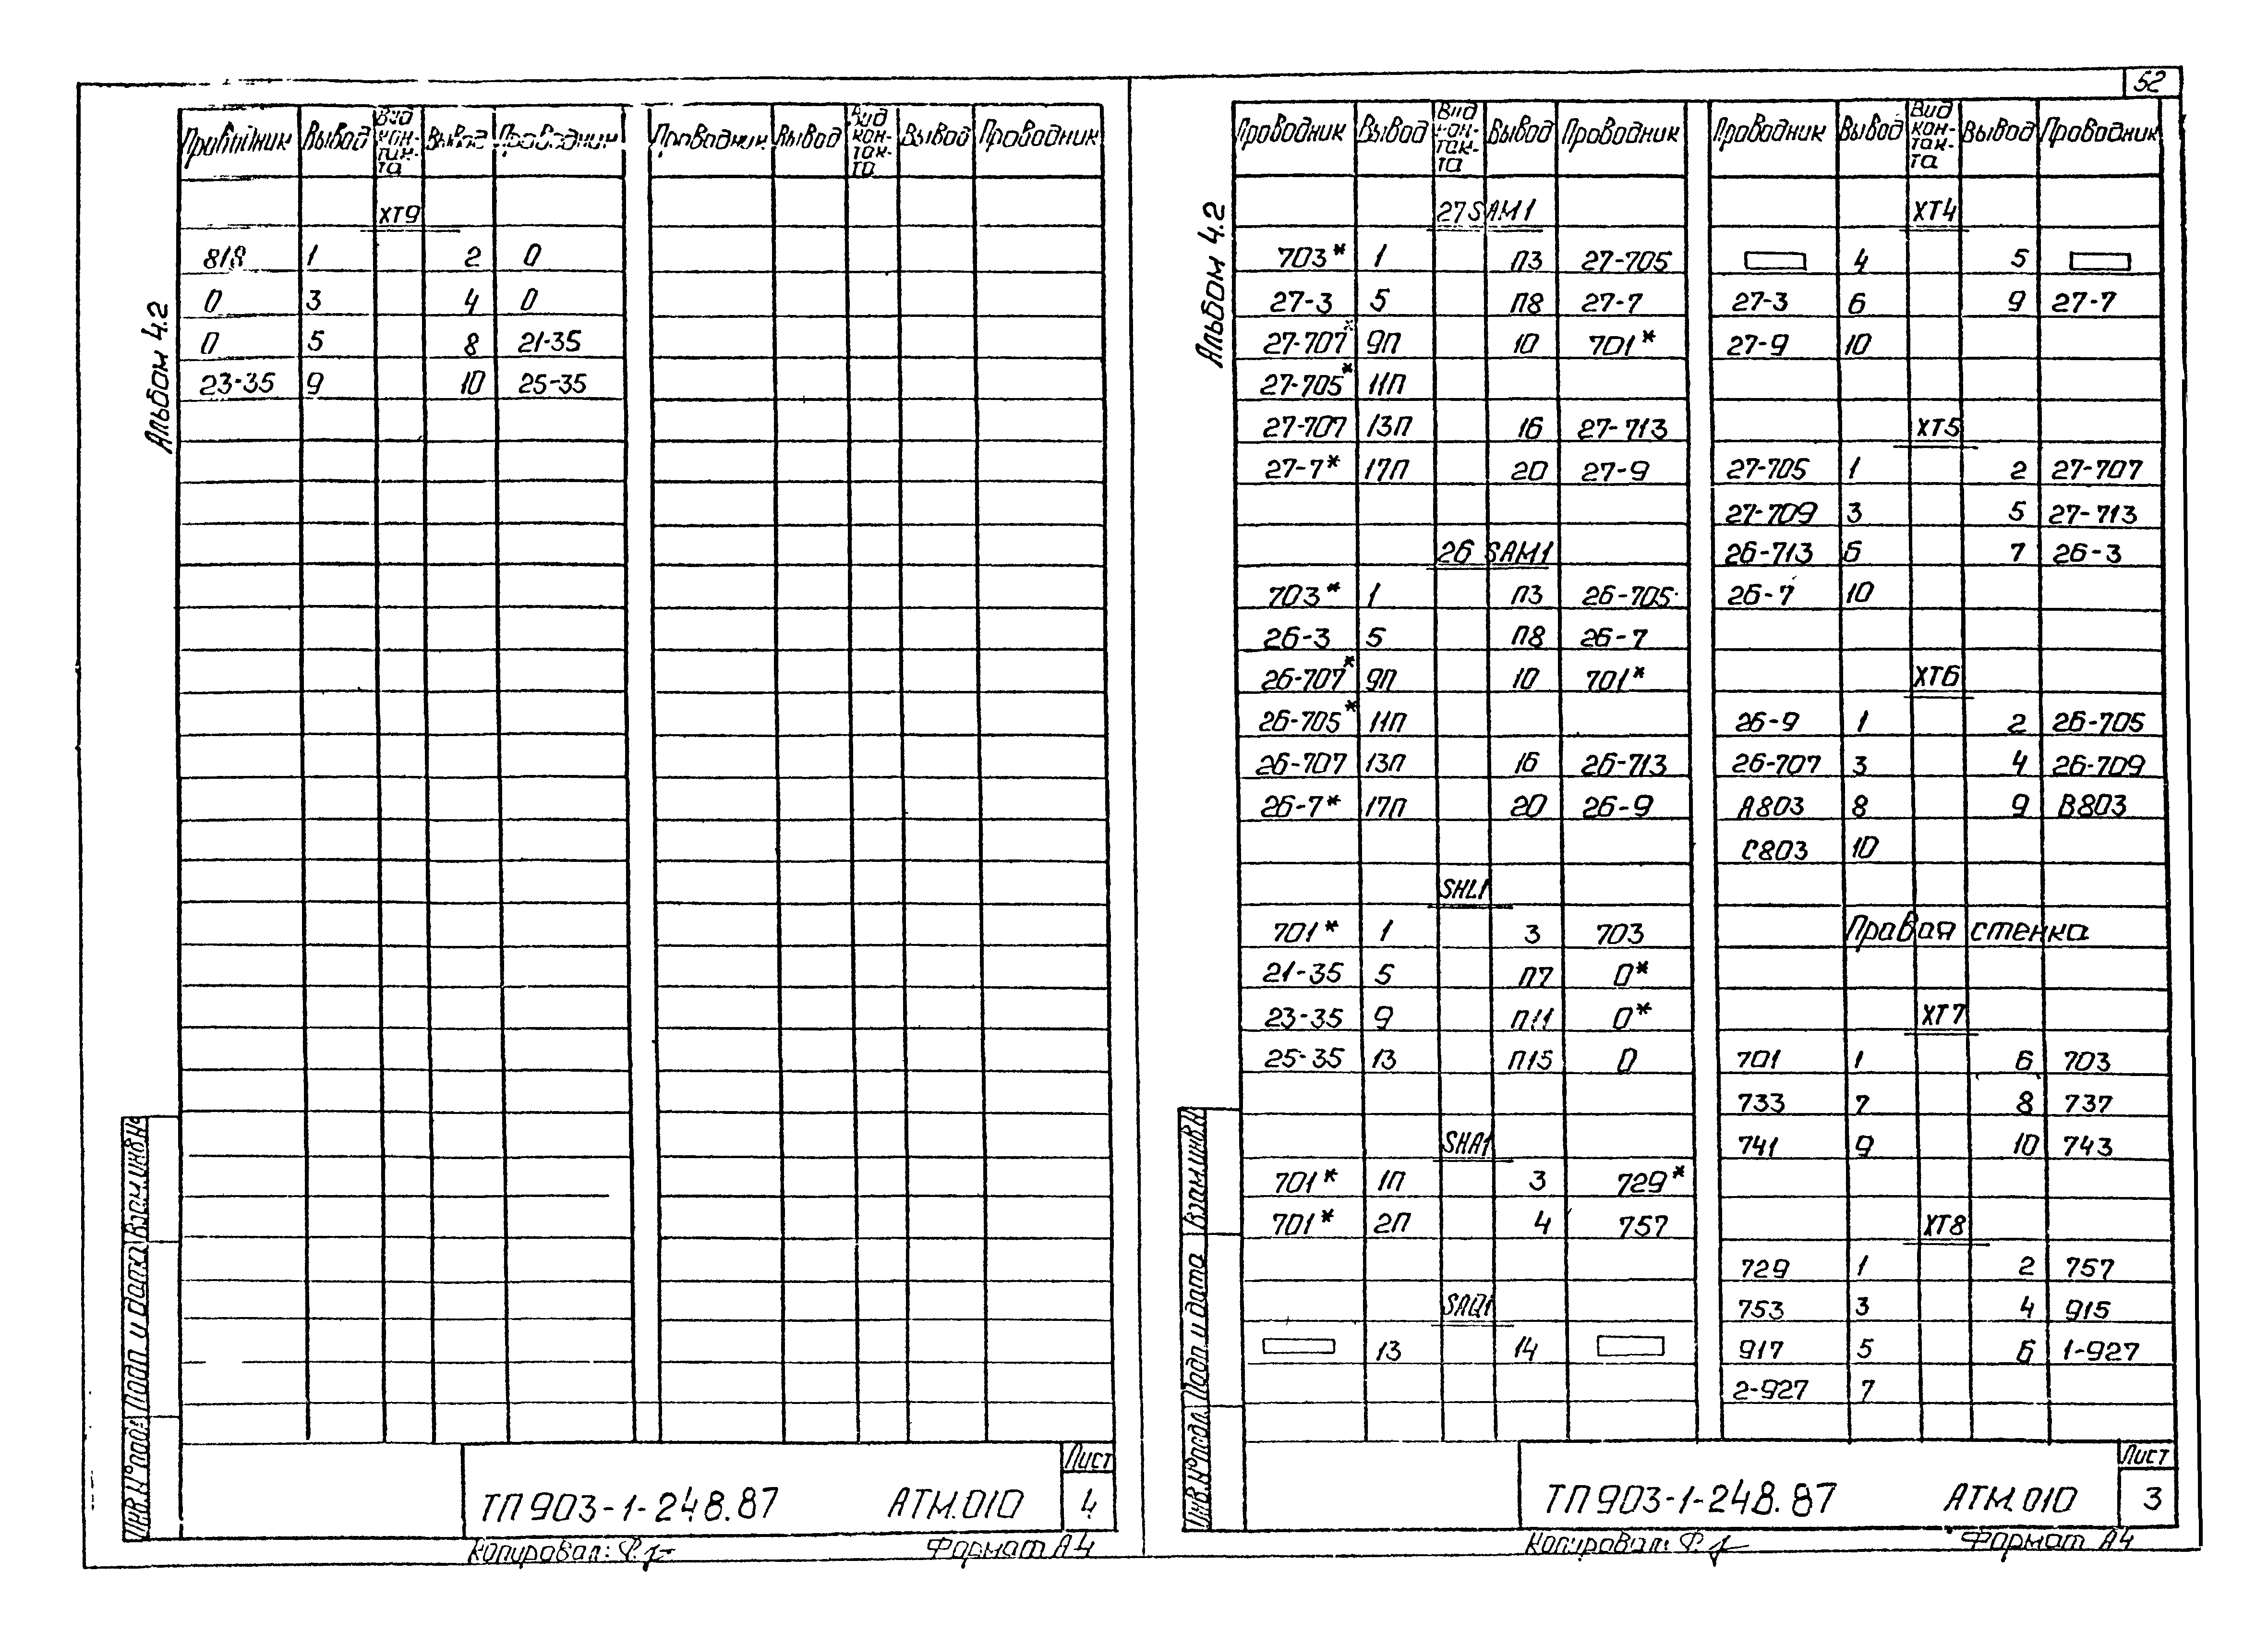 52
Альбом 4.2
Проводник Вывод Вид кон-так-та Вывод Проводник Проводник Вывод Вид кон-так-та Вывод Проводник
ХТ9
818 1 2 0
0 3 4 0
0 5 8 21-35
23-35 9 10 25-35
Инв.N°подл. Подп. и дата Взам.инв.N°
ТП 903-1-248.87 АТМ.010 Лист 4
Копировал: Формат А4
Альбом 4.2
Проводник Вывод Вид кон-так-та Вывод Проводник
27SAM1
703* 1 П3 27-705
27-3 5 П8 27-7
27-707* 9П 10 701*
27-705* 11П
27-707 13П 16 27-713
27-7* 17П 20 27-9
26 SAM1
703* 1 П3 26-705
26-3 5 П8 26-7
26-707* 9П 10 701*
26-705* 11П
26-707 13П 16 26-713
26-7* 17П 20 26-9
SHL1
701* 1 3 703
21-35 5 П7 0*
23-35 9 П11 0*
25-35 13 П15 0
SHA1
701* 1П 3 729*
701* 2П 4 757
SAQ1
13 14
Проводник Вывод Вид кон-так-та Вывод Проводник
ХТ4
4 5
27-3 6 9 27-7
27-9 10
ХТ5
27-705 1 2 27-707
27-709 3 5 27-713
26-713 6 7 26-3
26-7 10
ХТ6
26-9 1 2 26-705
26-707 3 4 26-709
А803 8 9 В803
С803 10
Правая стенка
ХТ7
701 1 6 703
733 7 8 737
741 9 10 743
ХТ8
729 1 2 757
753 3 4 915
917 5 6 1-927
2-927 7
Инв.N°подл. Подп. и дата Взам.инв.N°
ТП 903-1-248.87 АТМ.010 Лист 3
Копировал: Формат А4